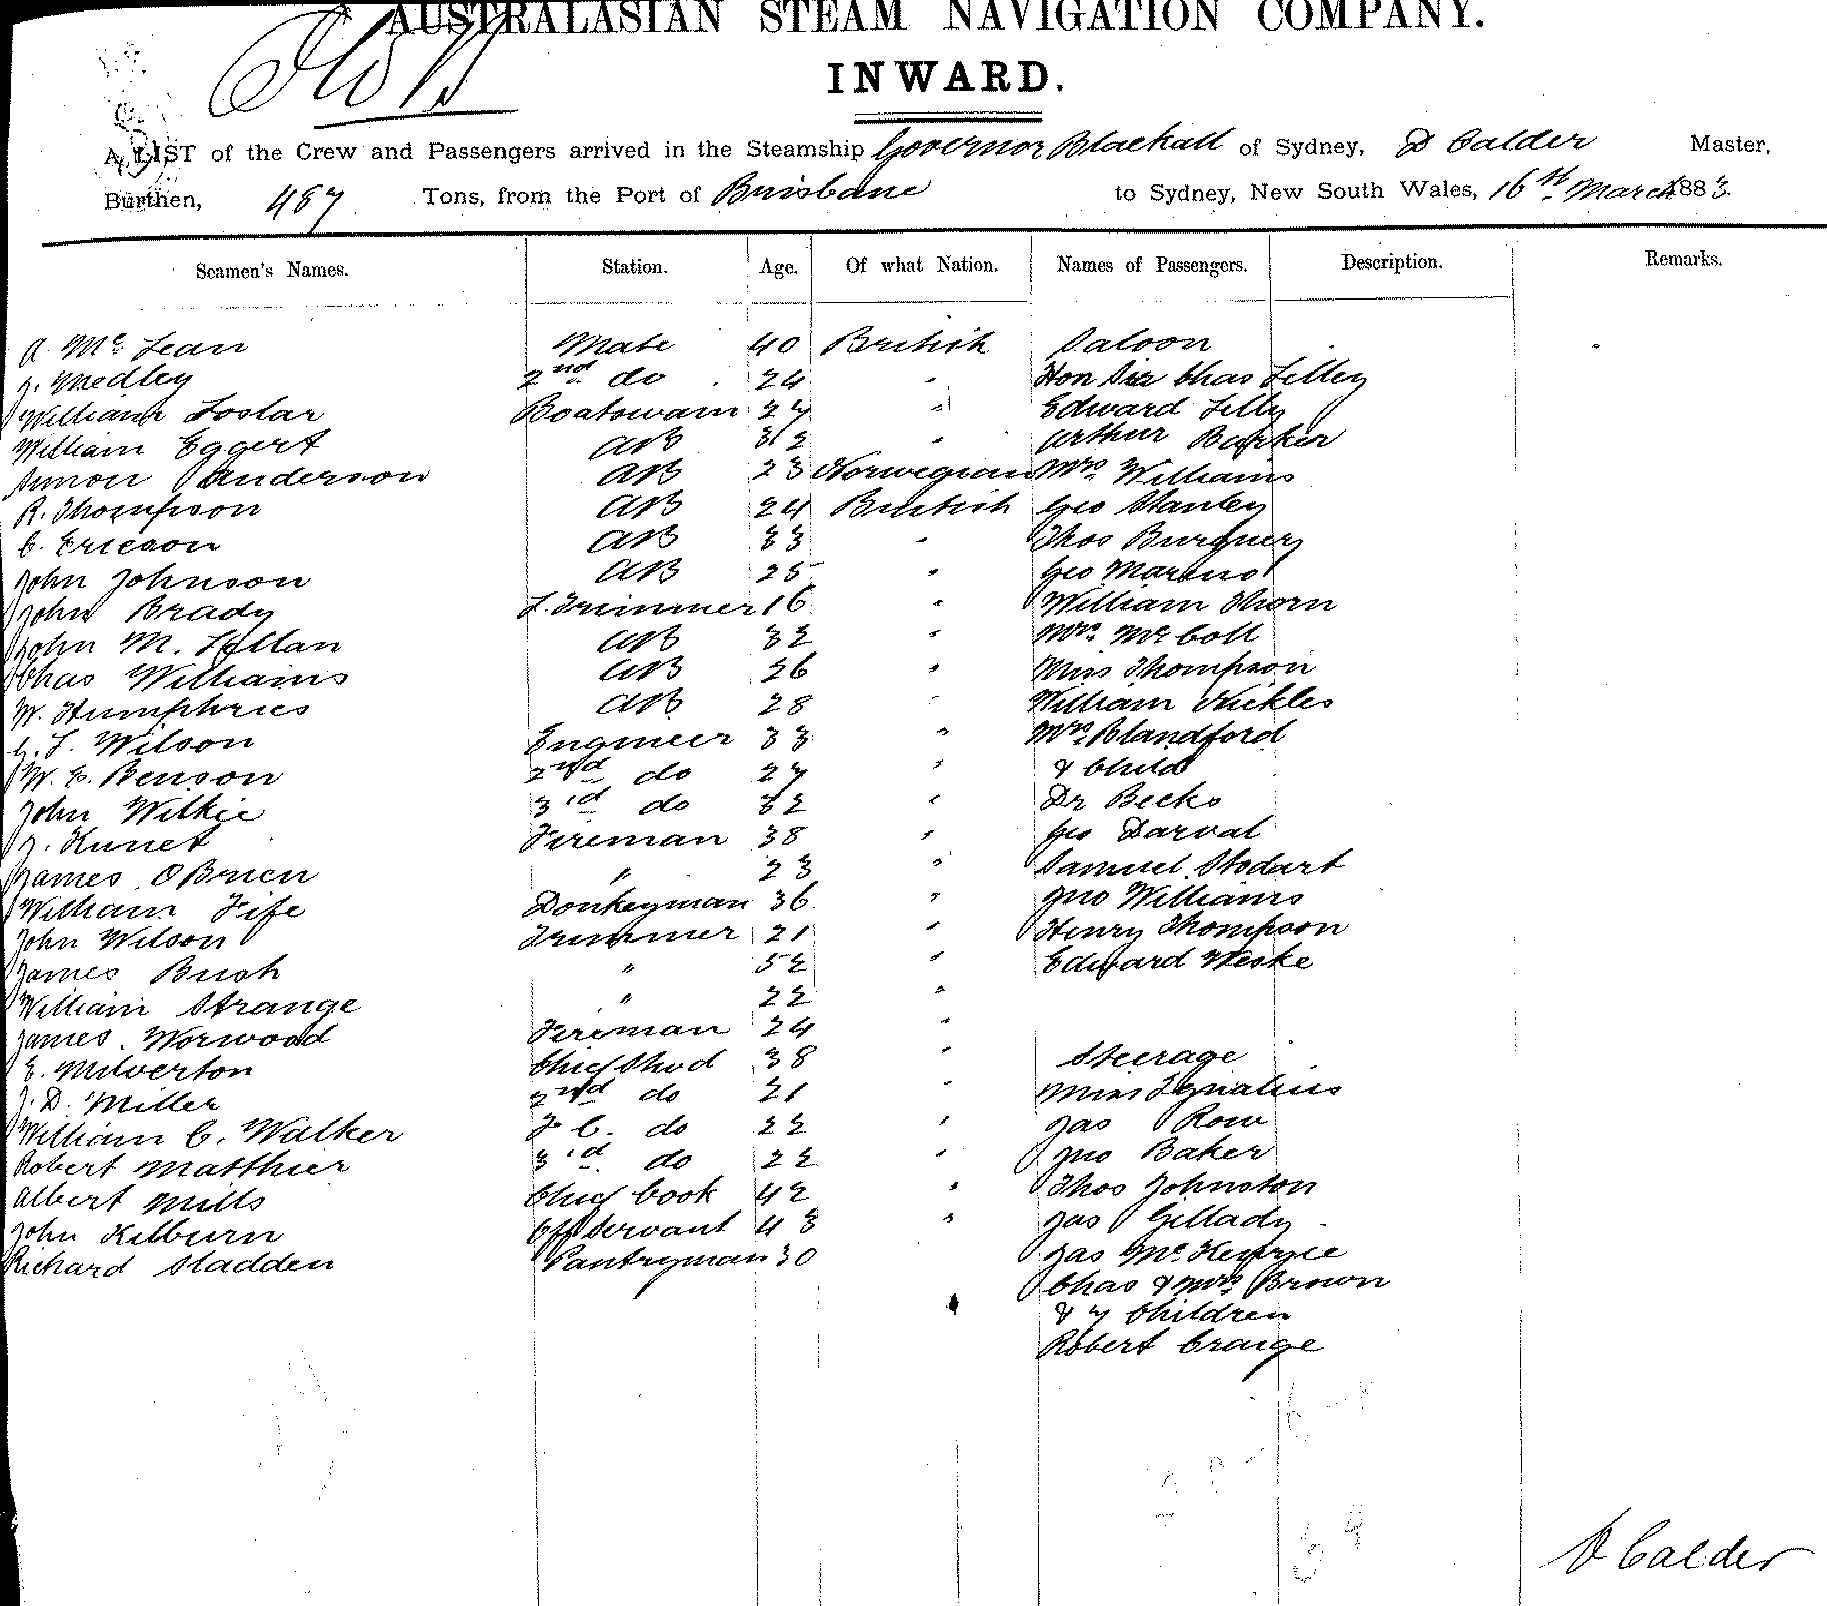 AUSTRALASIAN STEAM NAVIGATION COMPANY.
INWARD.
A LIST of the Crew and Passengers arrived in the Steamship Governor Blackall of Sydney, D Calder Master,
Burthen, 487 Tons, from the Port of Brisbane to Sydney, New South Wales, 16th March 1883
Seamen's Names. Station. Age. Of what Nation. Names of Passengers. Description. Remarks.
A. Mc Lean Mate 40 British Saloon
J. Medley 2nd do 24 " Hon Sir Chas Lilley
William Loslar Boatswain 27 " Edward Lilly
William Eggert AB 32 " Arthur Barker
Simon Anderson AB 23 Norwegian Mrs. Williams
R. Thompson AB 24 British Geo Stanley
C. Ericson AB 33 " Thos Burguery
John Johnson AB 25 " Geo
John Brady L. Trimmer 16 " William Thorn
John M. Lellan AB 32 " Mrs. Mc Coll
Chas Williams AB 26 " Miss Thompson
W. Humphries AB 28 " William Nickles
G. L. Wilson Engineer 33 " Mrs. Blandford
W. C. Benson 2nd do 27 " & Child
John Wilkie 3rd do 32 " Dr Becks
J. Fireman 38 " Geo Darval
James O Brien " 23 " Samuel Stodart
William Fife Donkeyman 36 " Jno Williams
John Wilson Trimmer 21 " Henry Thompson
James Bush " 52 " Edward Weske
William Strange " 22 "
James Worwood Fireman 24 "
E. Milverton Chief Stwd 38 " Steerage
J. D. Miller 2nd do 21 " Miss Ignatius
William C. Walker F C. do 22 " Jas Row
Robert Matthier 3rd do 22 " Jno Baker
Albert Mills Chief Cook 42 " Thos Johnston
John Kilburn Off Servant 43 " Jas Gillady
Richard Sladden Pantryman 30 Jas Mc Kenzie
Chas & Mrs. Brown
& 7 Children
Robert Craige
D Calder